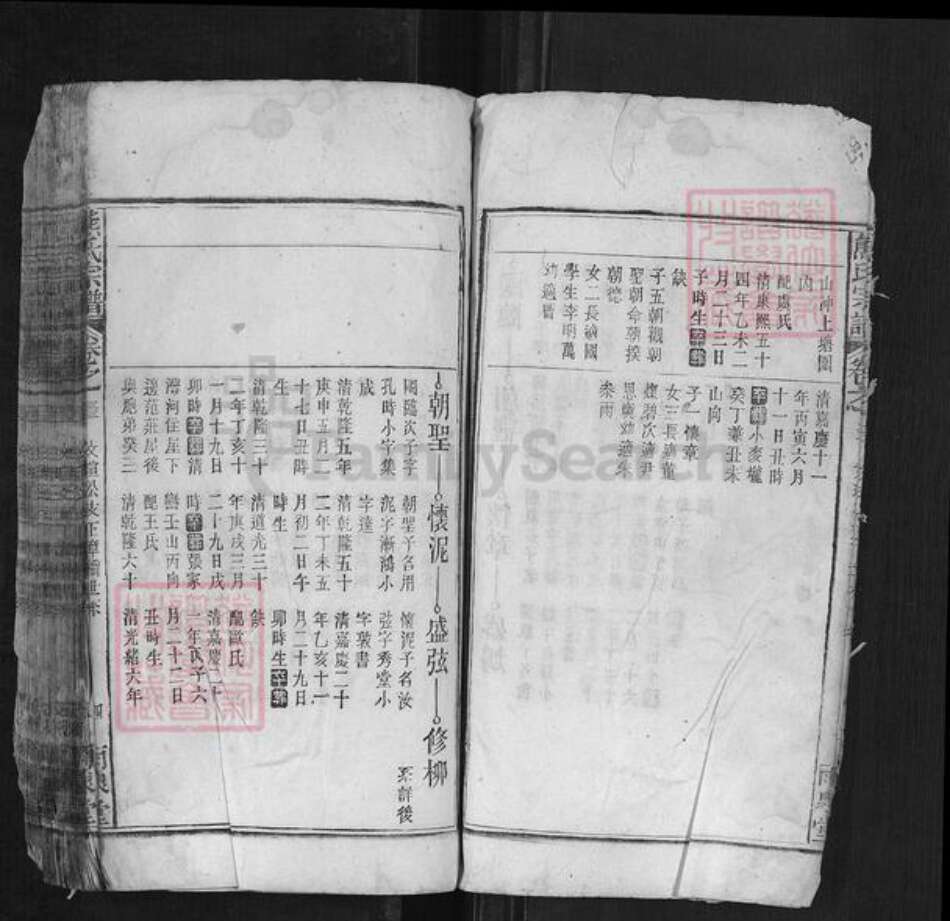 山冲上塘園
內
配盧氏
清康熙五十
四年乙未二
月二十三日
子時生卒葬
缺
子五朝觀朝
聖朝命朝揆
朝德
女二長適國
學生李明萬
幼適晋
清嘉慶十一
年丙寅六月
十一日丑時
卒葬小麥壠
癸丁兼丑未
山向
子一懷章
女三長適董
朝聖
懷泥
盛弦
修柳
系詳後
國臨次子字
孔時小字集
成
清乾隆五年
庚申五月二
十七日丑時
生
清乾隆三十
二年丁亥十
一月十九日
卯時卒葬清
灣河住屋下
邊范莊屋後
與胞弟癸三
朝聖子名用
泥字漸鴻小
字達
清乾隆五十
二年丁未五
月初二日午
時生
清道光三十
年庚戌三月
二十九日戌
時卒葬張家
巒壬山丙向
配王氏
清乾隆六十
懷泥子名汝
弦字秀堂小
字敬書
清嘉慶二十
年乙亥十一
月二十九日
卯時生卒葬
缺
配歐氏
清嘉慶二十
一年丙子六
月二十二日
丑時生
清光緒六年